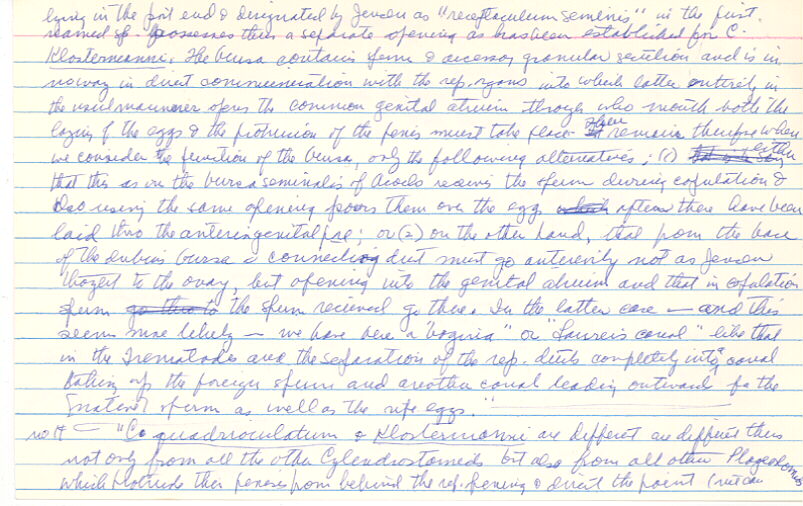 lying in the post end & designated by Jensen as "receptaculum seminis" in the first
named sp. possesses thus a separate opening as has been established for C.
Klostermanni. The bursa contains sperm & accessory granular secretion and is in
noway in direct communication with the rep. organs into which latter entirely in
the usual manner opens the common genital atrium through who mouth both the
laying of the eggs & the protrusion of the penis must take place. There remains therefore when
we consider the function of the bursa, only the following alternatives: (1) either
that this as in the bursa seminalis of Acoels receives the sperm during copulation &
also using the same opening pours them over the eggs after these have been
laid thro the anterior genital pore; or (2) on the other hand, that from the base
of the dubious bursa a connecting duct must go anteriorly not as Jensen
thought to the ovary, but opening into the genital atrium and that in copulation
sperm to the sperm received go there. In the latter case — and this
seems more likely — we have here a "vagina" or "Laurer's canal" like that
in the Trematodes and the separation of the rep. ducts completely into a canal
taking up the foreign sperm and another canal leading outwards for the
sperm as well as the ripe eggs."
"C. quadrioculatum & Klostermanni are different are different thus
not only from all the other Cylindrostomids but also from all other Plagiostomids
which protrude their penis from behind the rep. opening & direct the point